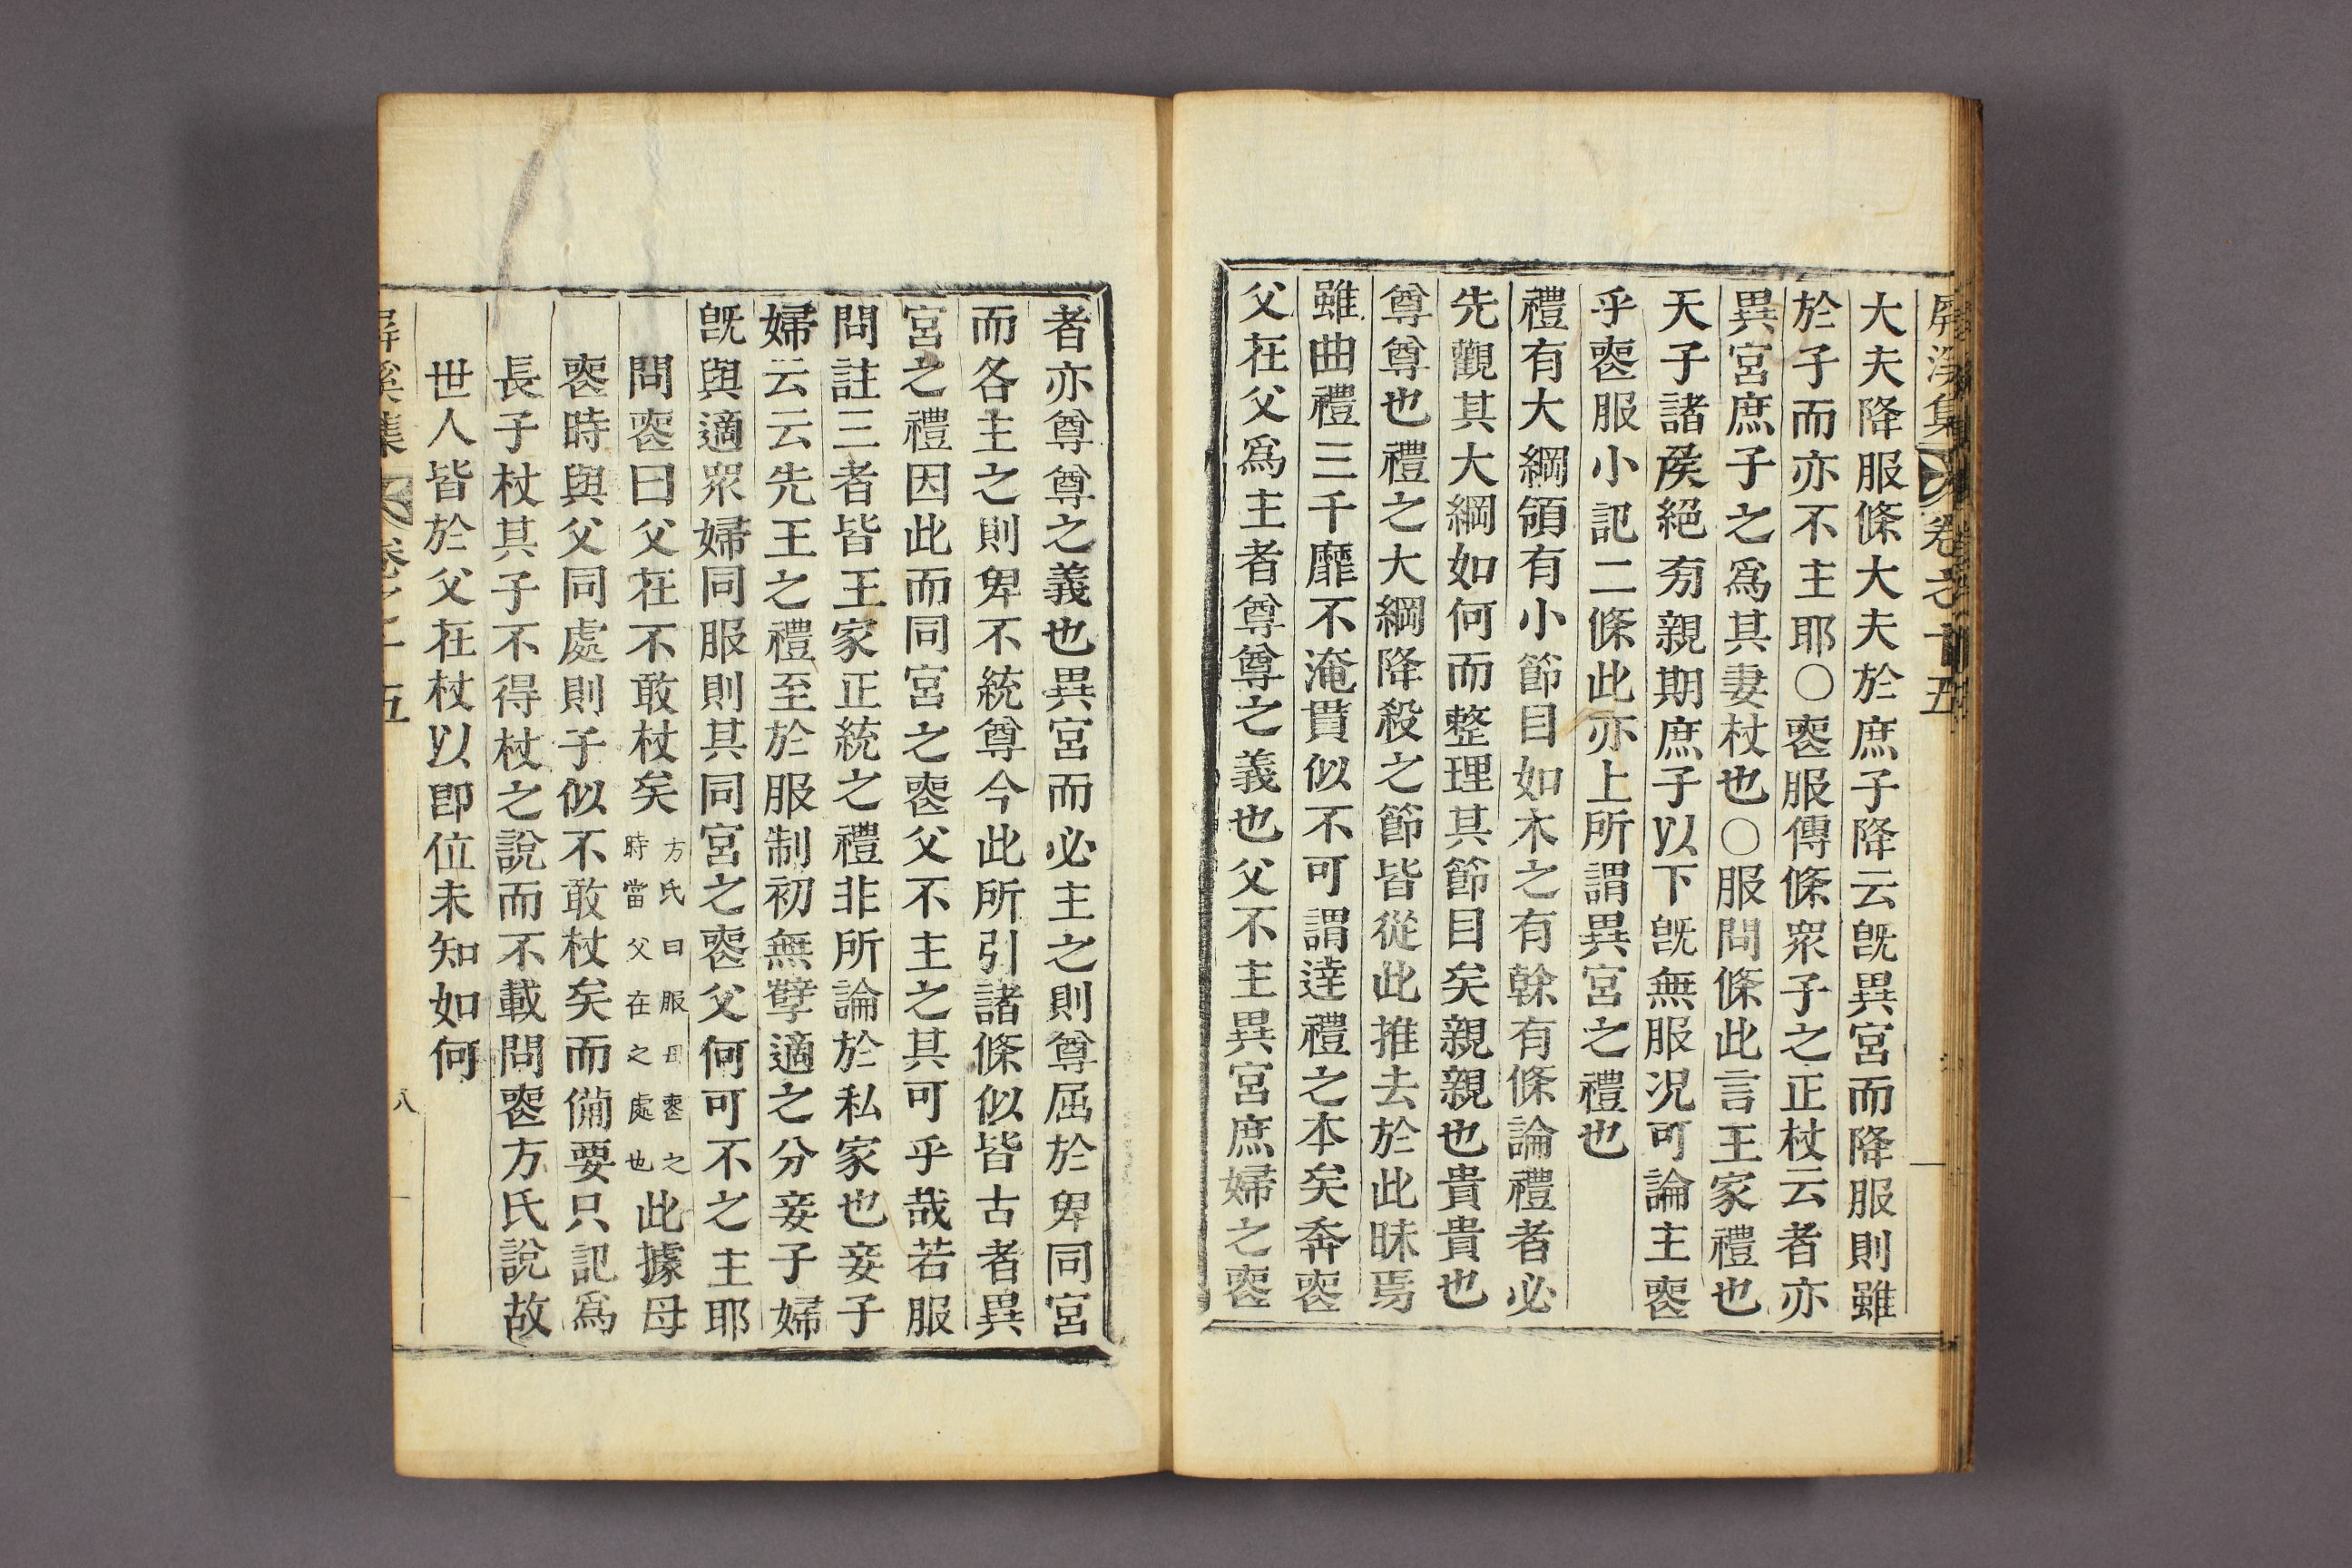 屛溪集 卷之十五
大夫降服條大夫於庶子降云旣異宮而降服則雖
於子而亦不主耶○喪服傳條衆子之正杖云者亦
異宮庶子之爲其妻杖也○服問條此言王家禮也
天子諸侯絕旁親期庶子以下旣無服况可論主喪
乎喪服小記二條此亦上所謂異宮之禮也
禮有大綱領有小節目如木之有榦有條論禮者必
先觀其大綱如何而整理其節目矣親親也貴貴也
尊尊也禮之大綱降殺之節皆從此推去於此昧焉
雖曲禮三千靡不淹貫似不可謂達禮之本矣奔喪
父在父爲主者尊尊之義也父不主異宮庶婦之喪
者亦尊尊之義也異宮而必主之則尊屈於卑同宮
而各主之則卑不統尊今此所引諸條似皆古者異
宮之禮因此而同宮之喪父不主之其可乎哉若服
問註三者皆王家正統之禮非所論於私家也妾子
婦云云先王之禮至於服制初無孼適之分妾子婦
旣與適衆婦同服則其同宮之喪父何可不之主耶
問喪曰父在不敢杖矣方氏曰服母喪之時當父在之處也此據母
喪時與父同處則子似不敢杖矣而備要只記爲
長子杖其子不得杖之說而不載問喪方氏說故
世人皆於父在杖以卽位未知如何
屛溪集 卷之十五 八